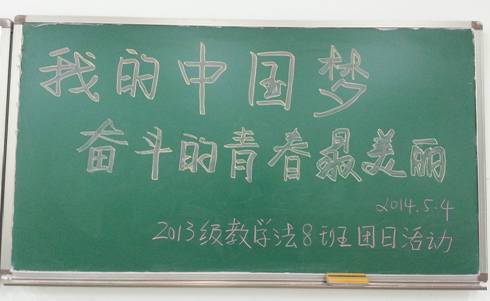 我的中国梦
奋斗的青春最美丽
2014.5.4
2013级教学法8班团日活动